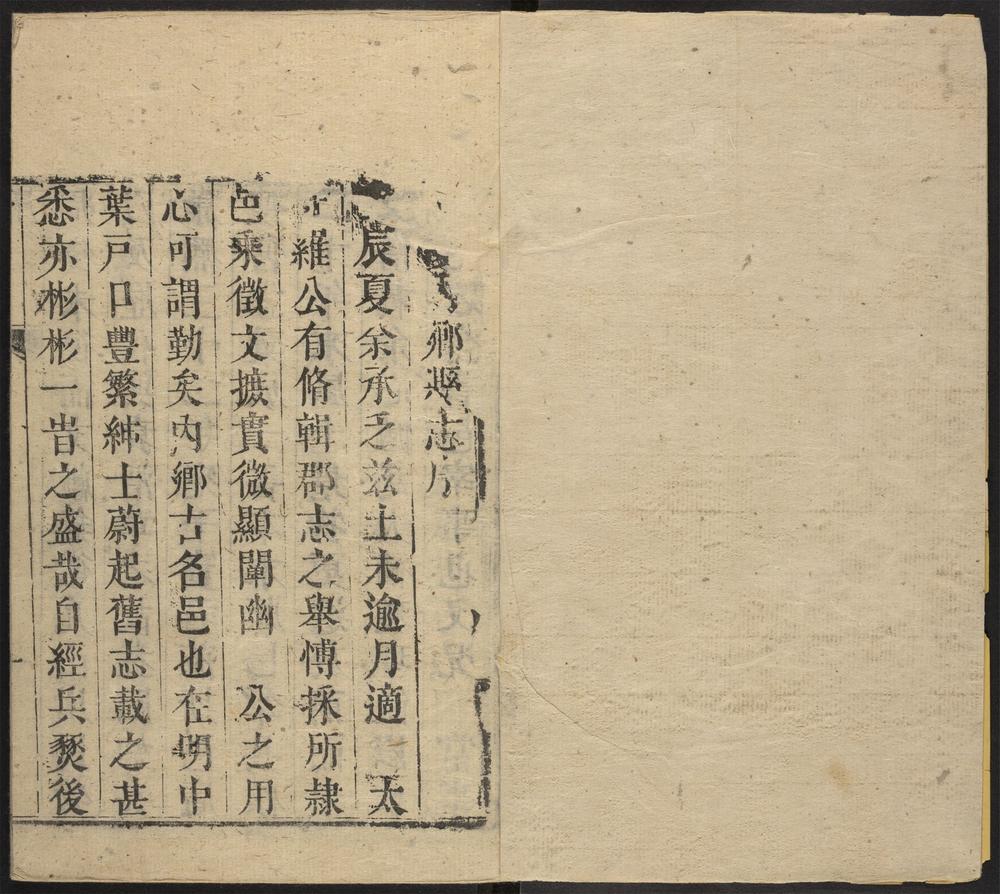 鄉縣志序
辰夏余承乏兹土未逾月適　太
維公有脩輯郡志之舉愽採所隷
邑乘徵文摭實微顯闡幽　公之用
心可謂勤矣内鄉古名邑也在明中
葉戸口豊繁紳士蔚起舊志載之甚
悉亦彬彬一旹之盛哉自經兵燹後